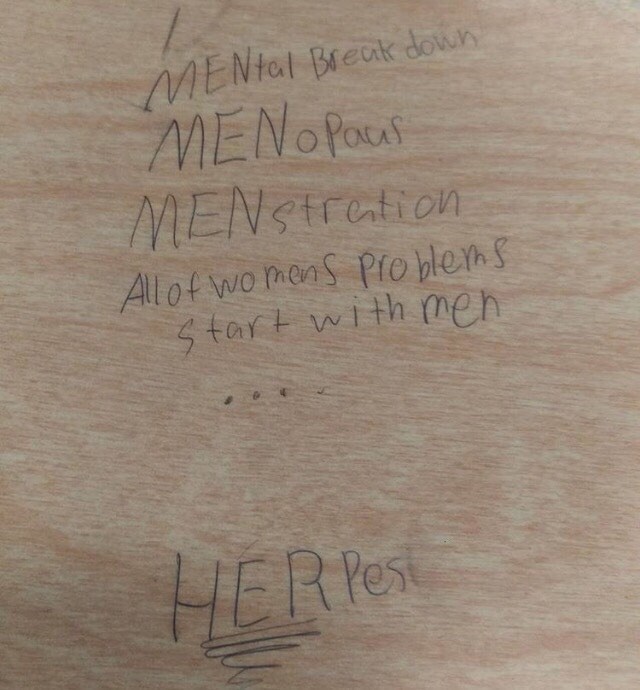 MENtal Breakdown
MENoPaus
MENstration
All of womens problems
start with men
....
HERPes